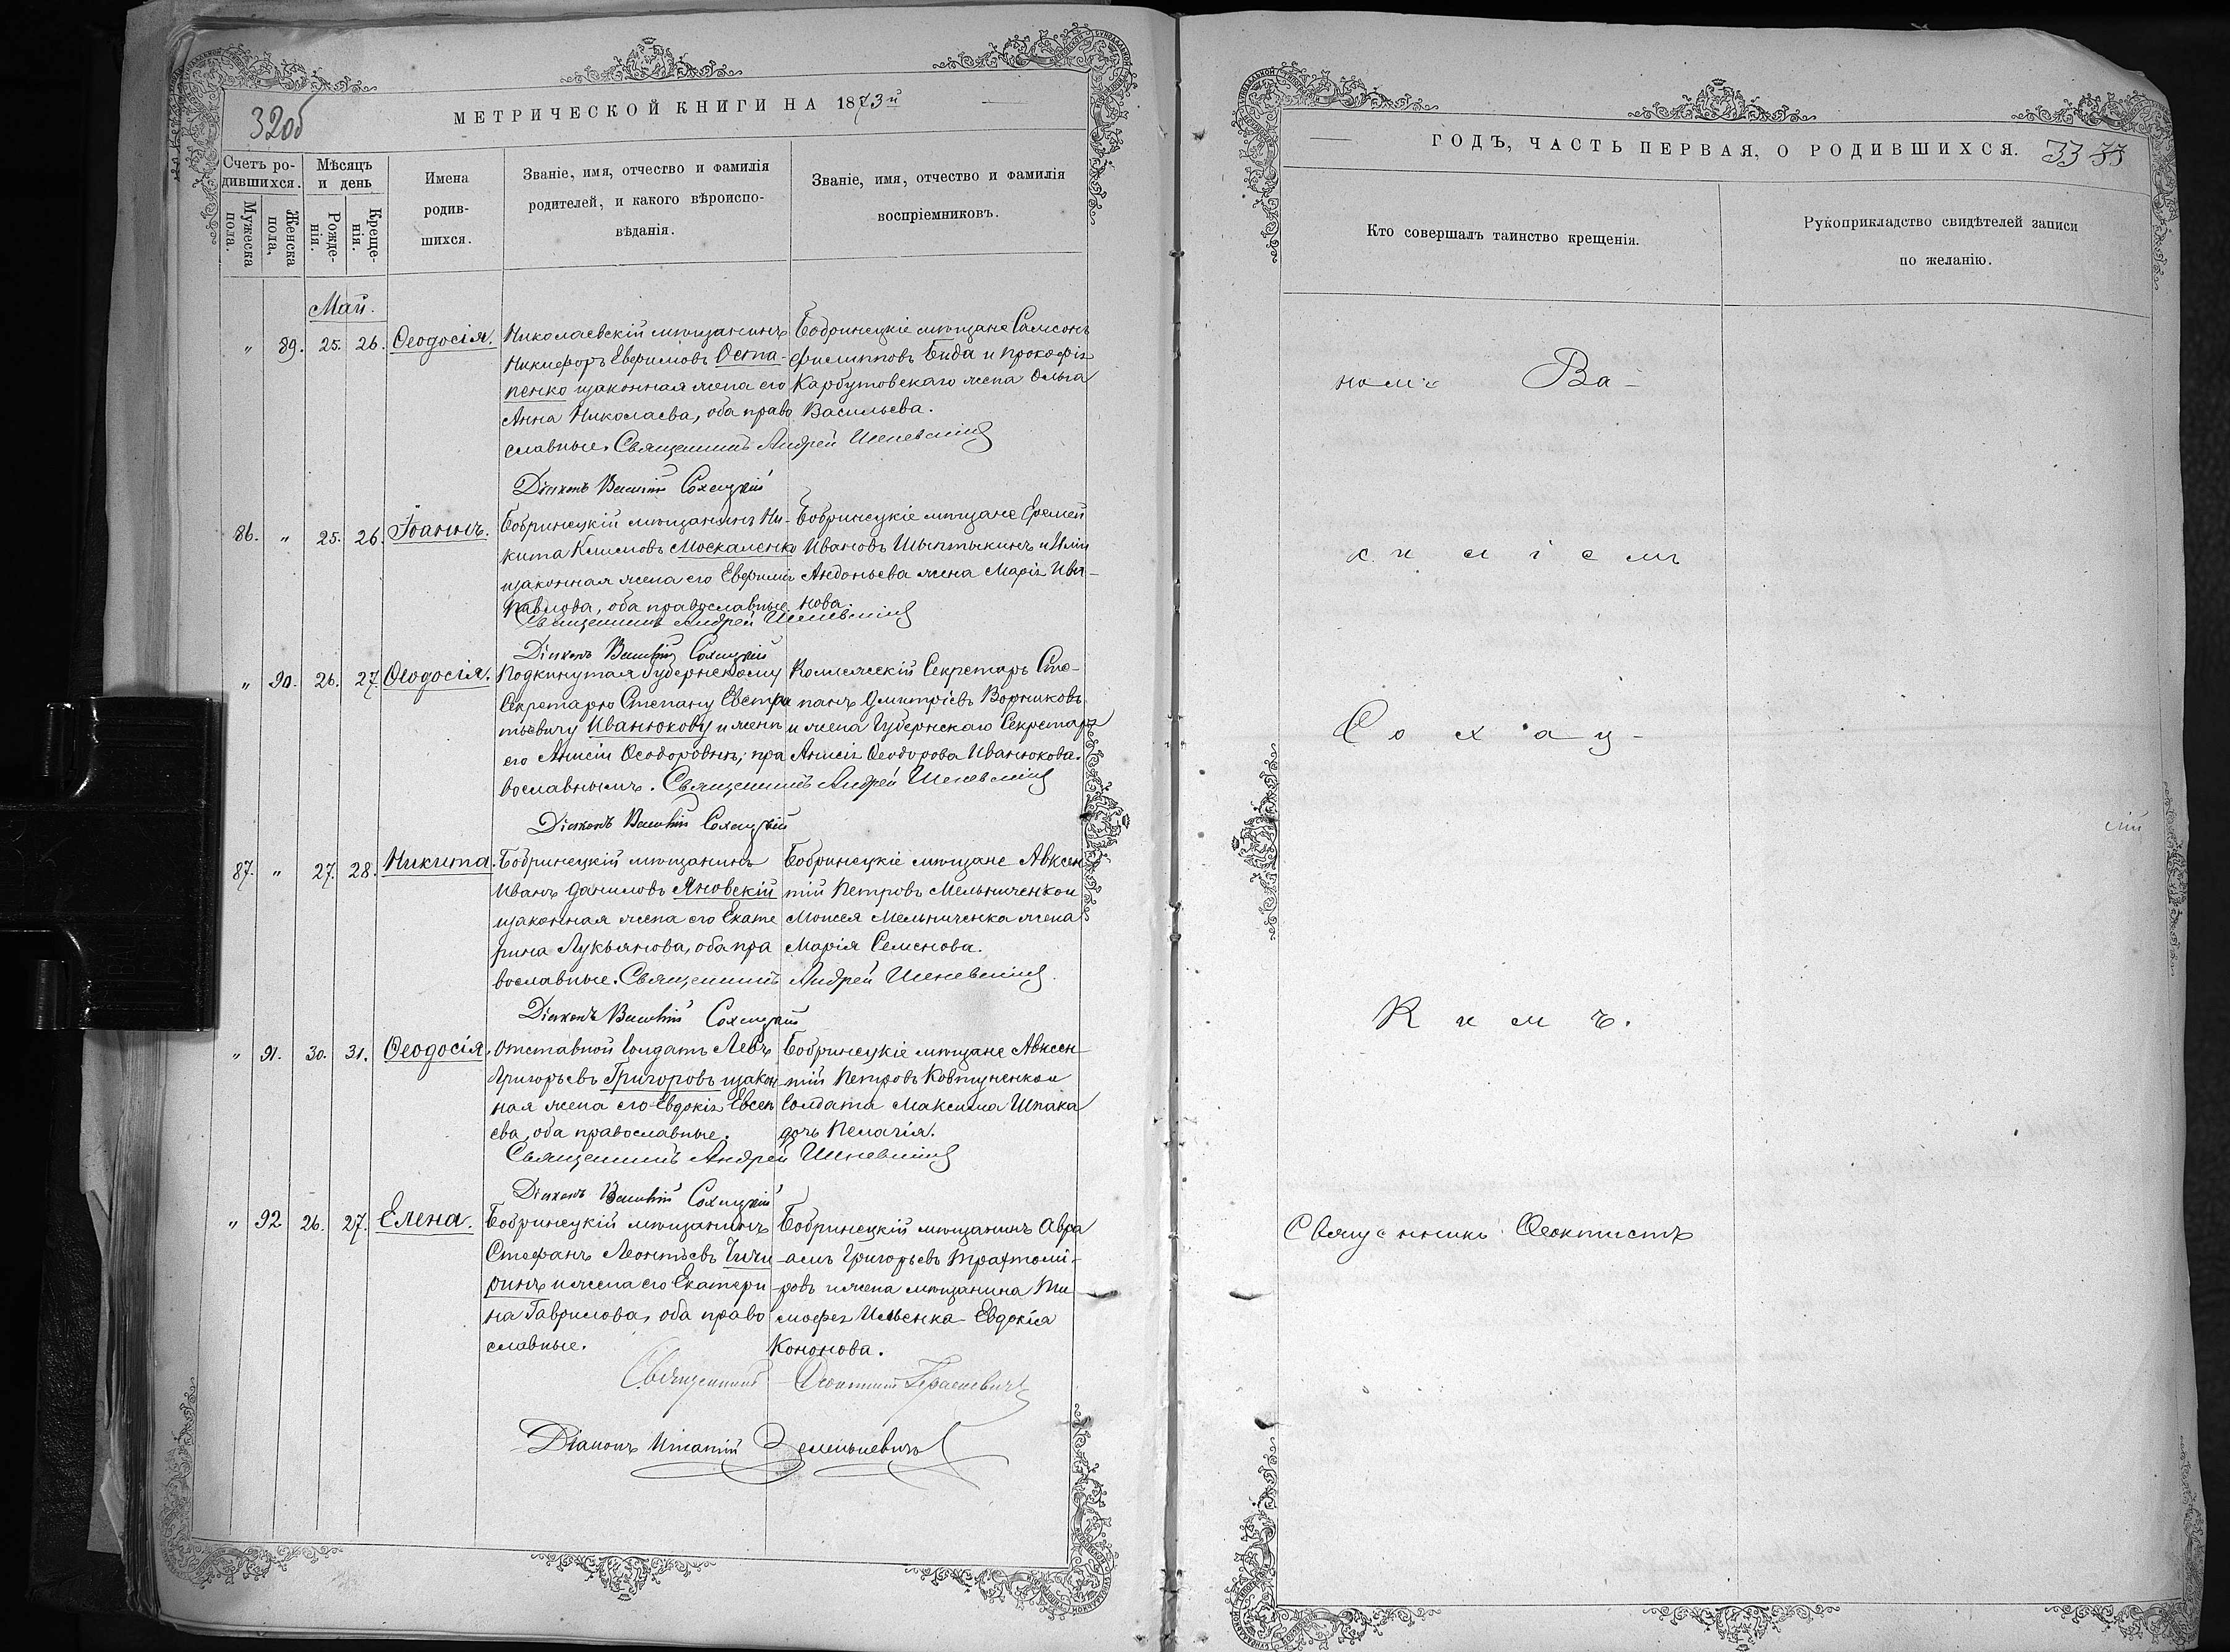 32об
МЕТРИЧЕСКОЙ КНИГИ НА 1873й
Счетъ ро-
дившихся.
Мужеска
пола.
Женска
пола,
Мѣсяцъ
и день
Рожде-
нія.
Креще-
нія.
Имена
родив-
шихся.
Званіе, имя, отчество и фамилія
родителей, и какого вѣроиспо-
вѣданія.
Званіе, имя, отчество и фамилія
воспріемниковъ.
Май.
" 89. 25. 26. Ѳеодосія.
Николаевскій мѣщанинъ
Никифоръ Евфимовъ Оста-
пенко изаконная жена его
Анна Николаева, оба право
славные. Священникъ Андрей
Діяконъ Василій Сохацкій
Бобринецкіе мѣщане Самсонъ
Филипповъ Бида и Прокофія
Карбутовскаго жена Ольга
Васильева.
86. " 25. 26. Іоаннъ.
Бобринецкій мѣщанинъ Ни-
кита Климовъ Москаленко
изаконная жена его Евфимія
Павлова, оба православные
Священникъ Андрей
Діяконъ Василій Сохацкій
Бобринецкіе мѣщане Еремей
Ивановъ Шыптыкинъ и Иліи
Андоньева жена Марія Ива-
нова.
" 90. 26. 27. Ѳеодосія.
Подкинутая Губернскому
Секретарю Степану Евстра
тьевичу Иванюкову и женѣ
его Анисіи Ѳеодоровнѣ, пра
вославнымъ. Священникъ Андрей
Діяконъ Василій Сохацкій
Коллежскій Секретарь Сте-
панъ Дмитріевъ Ворниковъ
и жена Губернскаго Секретаря
Анисія Ѳеодорова Иванюкова.
87. " 27. 28. Никита.
Бобринецкій мѣщанинъ
Иванъ Даниловъ Яновскій
изаконная жена его Екате
рина Лукьянова, оба пра
вославные. Священникъ Андрей
Діяконъ Василій Сохацкій
Бобринецкіе мѣщане Авксен
тій Петровъ Мельниченко и
Моисея Мельниченка жена
Марія Семенова.
" 91. 30. 31. Ѳеодосія.
Отставной солдатъ Левъ
Григорьевъ Григоровъ изакон
ная жена его Евдокія Евсеп
ева, оба православные.
Священникъ Андрей
Діяконъ Василій Сохацкій
Бобринецкіе мѣщане Авксен
тій Петровъ Ковтуненко и
Солдата Максима Шпака
дочь Пелагія.
" 92 26. 27. Елена.
Бобринецкій мѣщанинъ
Стефанъ Леонтіевъ Чичи
ринъ и жена его Екатери
на Гаврилова, оба право
славные.
Бобринецкій мѣщанинъ Авра
амъ Григорьевъ Трахтоми-
ровъ и жена мѣщанина Ти
мофея Ильенка Евдокія
Кононова.
Священникъ Ѳеоктистъ
Діаконъ Игнатій
ГОДЪ, ЧАСТЬ ПЕРВАЯ, О РОДИВШИХСЯ. 33 33
Кто совершалъ таинство крещенія.
Рукоприкладство свидѣтелей записи
по желанію.
номъ Ва-
с и л і е м ъ
С о х а ц -
к и м ъ.
Священникъ Ѳеоктистъ